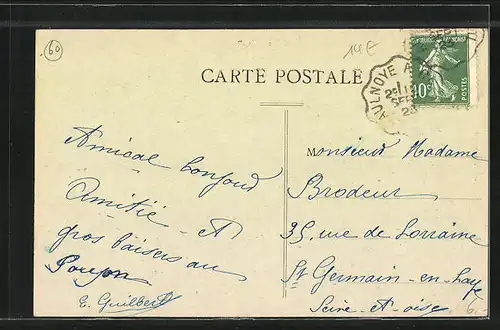 60
14€
CARTE POSTALE
AULNOYE A
2e
SEPT
40c
POSTES
Amical bonjour
Amitié et
gros baisers au
E. Guilbert
Monsieur Madame
Brodeur
35, rue de Lorraine
St Germain-en-Laye
Seine-et-oise